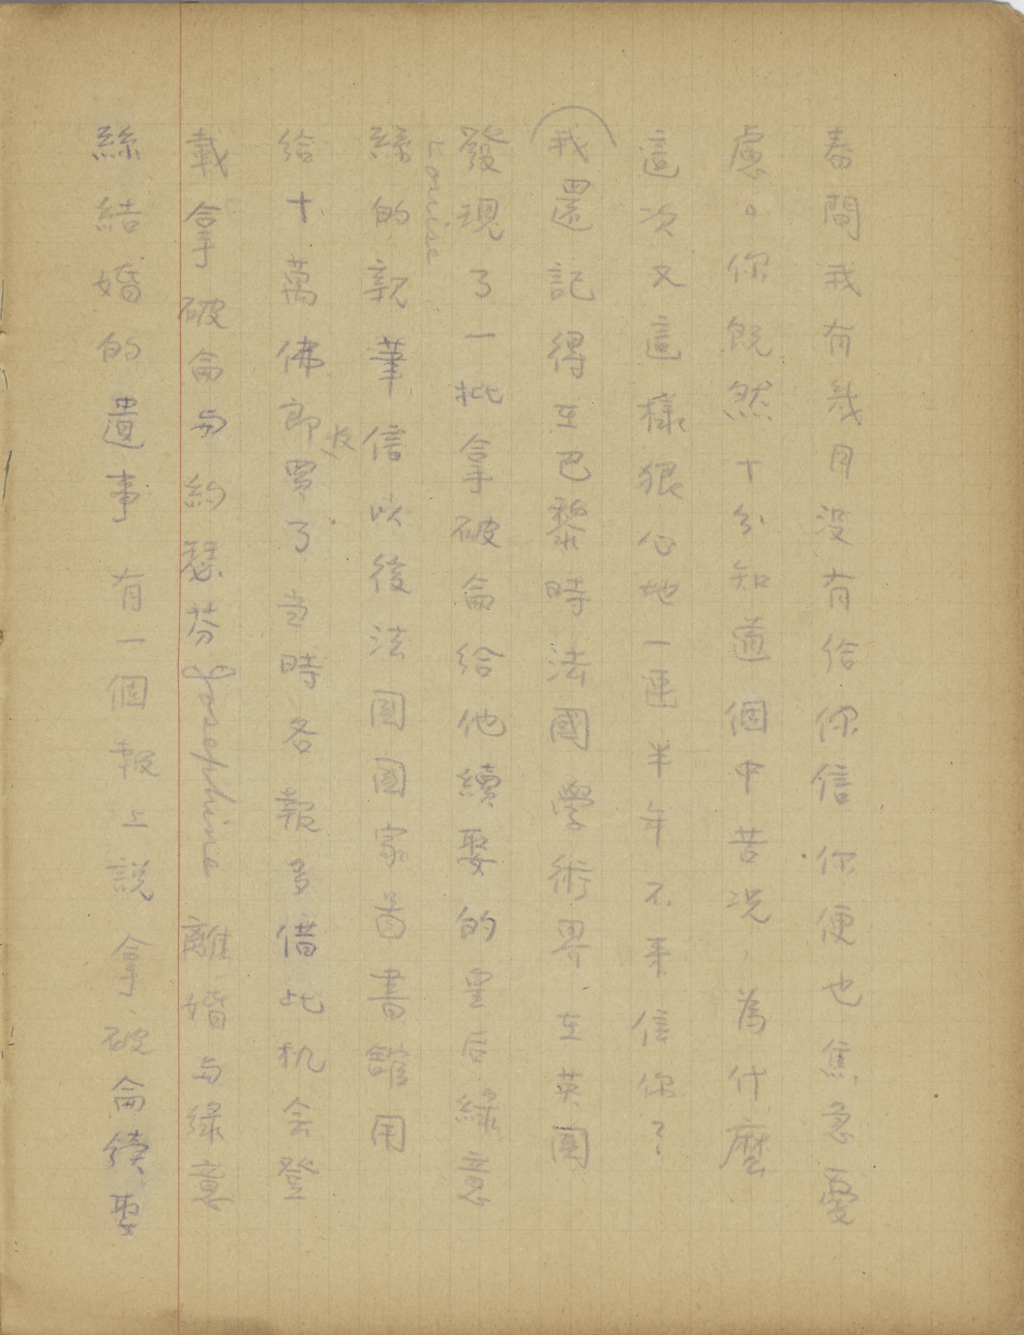 春間我有幾月没有给你信你便也焦急憂
慮。你既然十分知道個中苦况，為什麽
這次又這樣狠心地一連半年不来信你？
我還記得在巴黎時法國學術界在英國
發現了一批拿破侖给他續娶的皇后綠意
Louise
絲的親筆信以後法國國家啚書館用
给十萬佛郎買了当時各報多借此机会登
載拿破侖与約瑟芬 Josephine 離婚与綠意
絲結婚的遺事有一個報上説拿破侖續娶